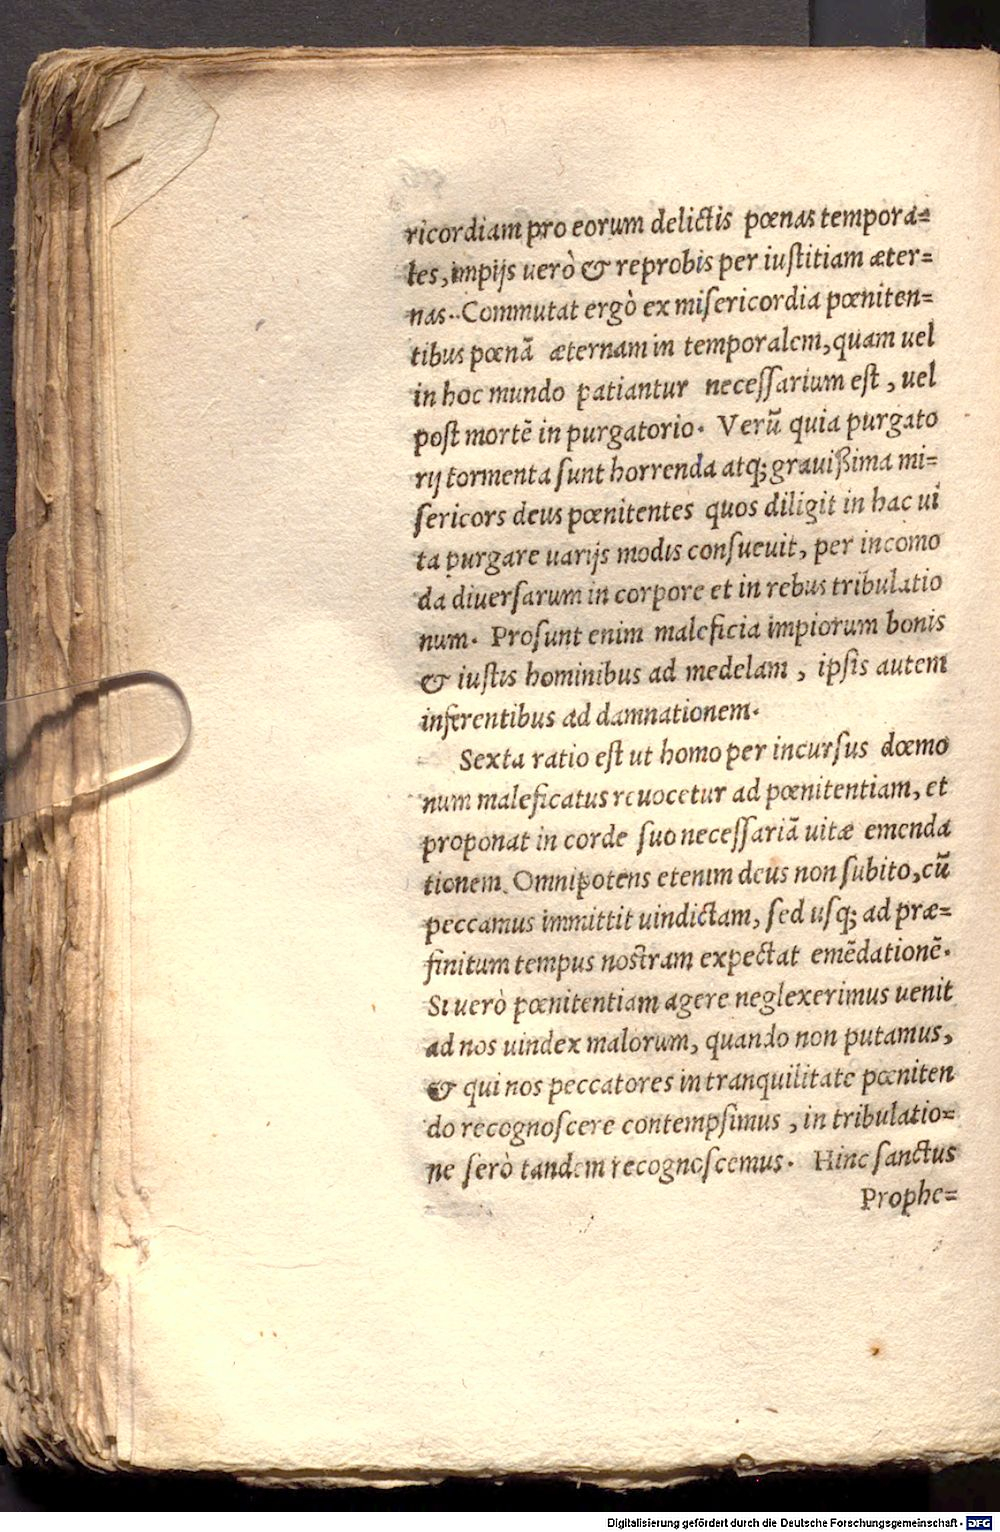 ricordiam pro eorum delictis pœnas tempora=
les, impijs uerò & reprobis per iustitiam æter=
nas. Commutat ergò ex misericordia pœniten=
tibus pœnã æternam in temporalem, quam uel
in hoc mundo patiantur necessarium est, uel
post mortẽ in purgatorio. Verũ quia purgato
rij tormenta sunt horrenda atq; grauißima mi=
sericors deus pœnitentes quos diligit in hac ui
ta purgare uarijs modis consueuit, per incomo
da diuersarum in corpore et in rebus tribulatio
num. Prosunt enim maleficia impiorum bonis
& iustis hominibus ad medelam, ipsis autem
inferentibus ad damnationem.
Sexta ratio est ut homo per incursus dœmo
num maleficatus reuocetur ad pœnitentiam, et
proponat in corde suo necessariã uitæ emenda
tionem. Omnipotens etenim deus non subito, cũ
peccamus immittit uindictam, sed usq; ad præ=
finitum tempus nostram expectat emẽdationẽ.
Si uerò pœnitentiam agere neglexerimus uenit
ad nos uindex malorum, quando non putamus,
& qui nos peccatores in tranquilitate pœniten
do recognoscere contempsimus, in tribulatio=
ne serò tandem recognoscemus. Hinc sanctus
Prophe=
Digitalisierung gefördert durch die Deutsche Forschungsgemeinschaft - DFG